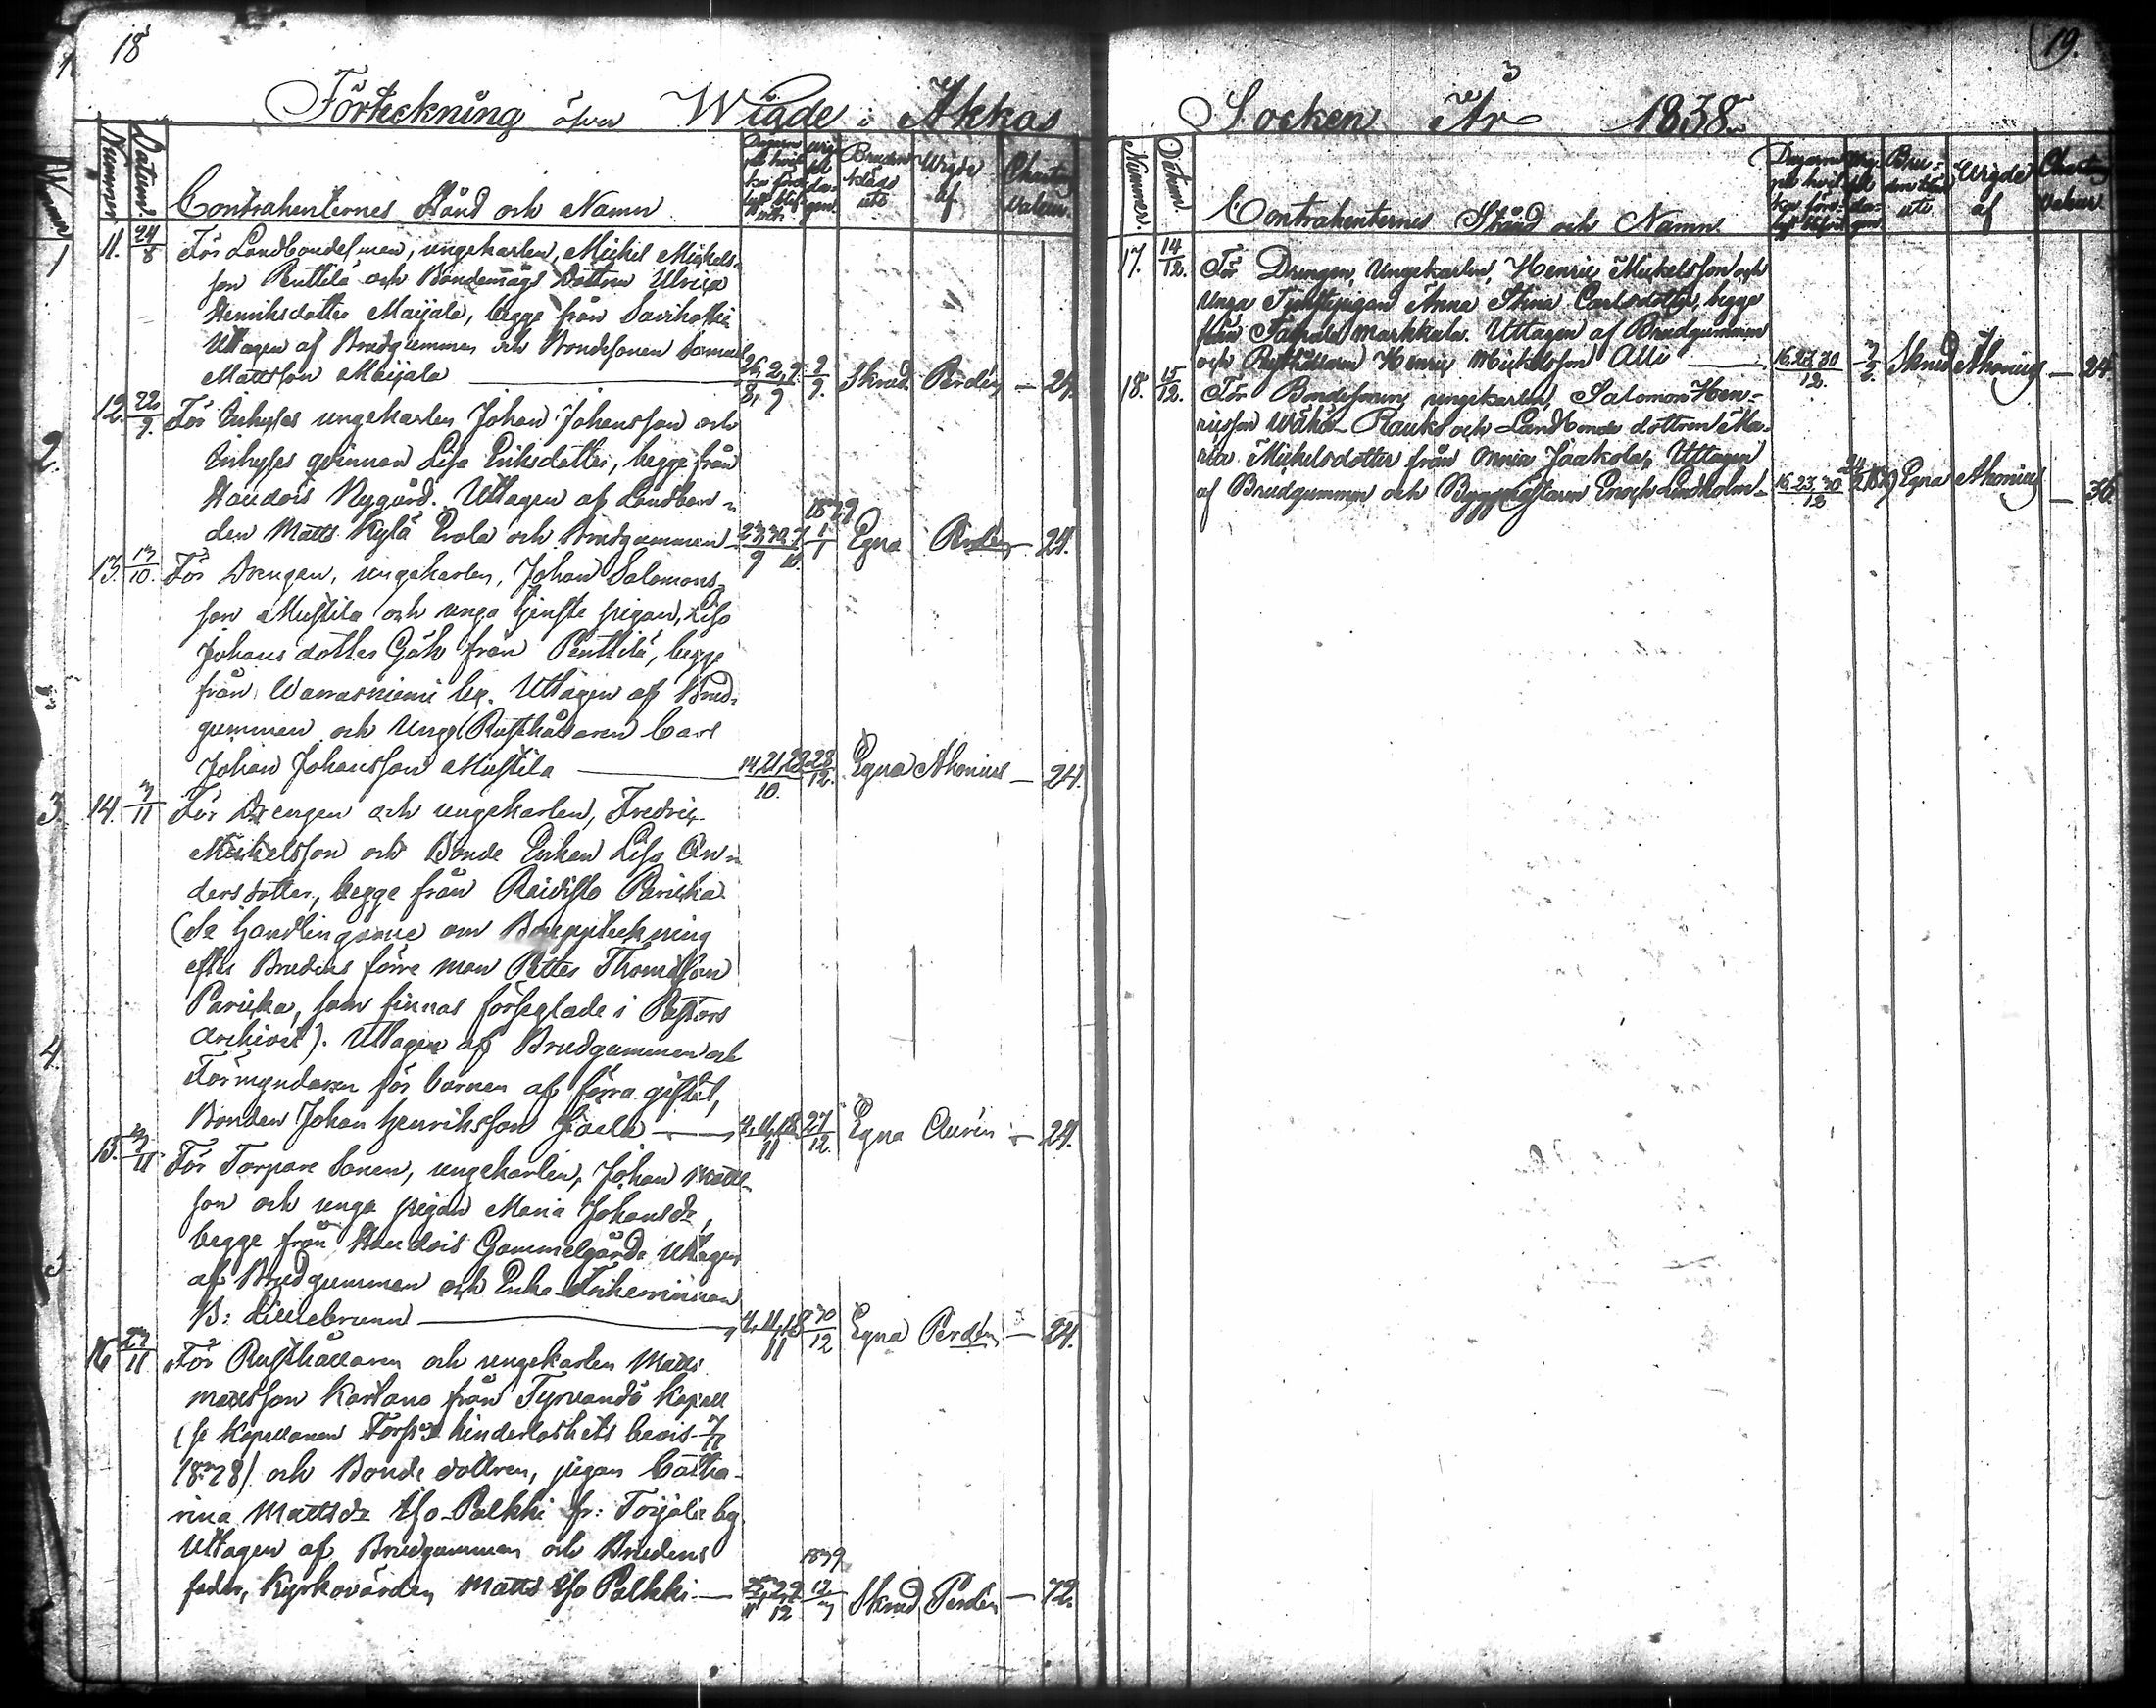 18
Förteckning öfver Wigde i Akkas
Nummer
Datum
Contrahenternes Stånd och Namn
Wigde af
11. 24/8 För Landbondesonen, ungekarlen, Mickel Mickels-
son Penttilä och Bondemågs Dottren Ulrica
Henriksdotter Maijala, begge från Savikoski
Uttagen af Brudgummen och Bondesonen Samuel
Mattsson Maijala 26, 2, 9 / 8, 9 Skrud Perdén 24.
12. 22/9. För Inhyses ungekarlen Johan Johansson och
Inhyses qvinnan Lisa Eriksdotter, begge från
Haudois Nygård. Uttagen af Landbon-
den Matts Kylä Erola och Brudgummen 23, 30, 7 / 9 10. 1839 1/1 Egna Perdén 24.
13. 13/10. För Drengen, ungekarlen, Johan Salomons-
son Mustila och unga tjenste pigan, Lisa
Johans dotter Gök från Penttilä, begge
från Warrasniemi by. Uttagen af Brud-
gummen och Unge Rusthållaren Carl
Johan Johansson Mustila 14, 21, 28 / 10. 28/12. Egna Ahonius 24.
14. 3/11 För Drengen och ungekarlen, Fredric
Mickelsson och Bonde Enkan Lisa An-
dersdotter, begge från Roidisto Paricka
(Se Handlingarne om Bouppteckning
efter Brudens förre man Petter Thomasson
Paricka, som finnas förseglade i Pastors
Archivet). Uttagen af Brudgummen och
Förmyndaren för barnen af förra giftet,
Bonden Johan Henriksson 4, 11, 18 / 11 27/12. Egna Aurén 24.
15. 3/11 För Torpare Sonen, ungekarlen, Johan Matts-
son och unga pigan Maria Johansdr,
begge från Haudois Gammelgård. Uttagen
af Brudgummen och Enke Friherrinnan
B: Lilliebrunn 4, 11, 18 / 11 30/12 Egna Perdén 24.
16 23/11 För Rusthållaren och ungekarlen Matts
Mattsson Kartano från Tyrvandö Kapell
(se Kapellanen hinderlöshets bevis
1838) och Bonde dottren, pigan Catha-
rina Mattsdr Iso-Palkki fr: Toijala by
Uttagen af Brudgummen och Brudens
fader, Kyrkovärden Matts Iso Palkki 25, 2, 9 / 11 12 1839 12/3 Skrud Perdén 72.
19.
Socken År 1838
Nummer.
Datum.
Contrahenternes Stånd och Namn.
Wigde af
17. 14/12. För Drengen, Ungekarlen, Henric Mickelsson och
Unga Tjenstepigan Anna Stina Carlsdotter, begge
från Markkula. Uttagen af Brudgummen
och Rusthållaren Henric Mickelsson Alli 16, 23, 30 / 12. Skrud Ahonius 24
18. 15/12. För Bondesonen, ungekarlen, Salomon Hen-
ricsson Wähä-Rauko och Landbonde dottren Ma-
ria Mickelsdotter från Annia Jaakola, Uttagen
af Brudgummen och Byggmästaren Enoch Lindholm 16, 23, 30 / 12 Egna Ahonius 36